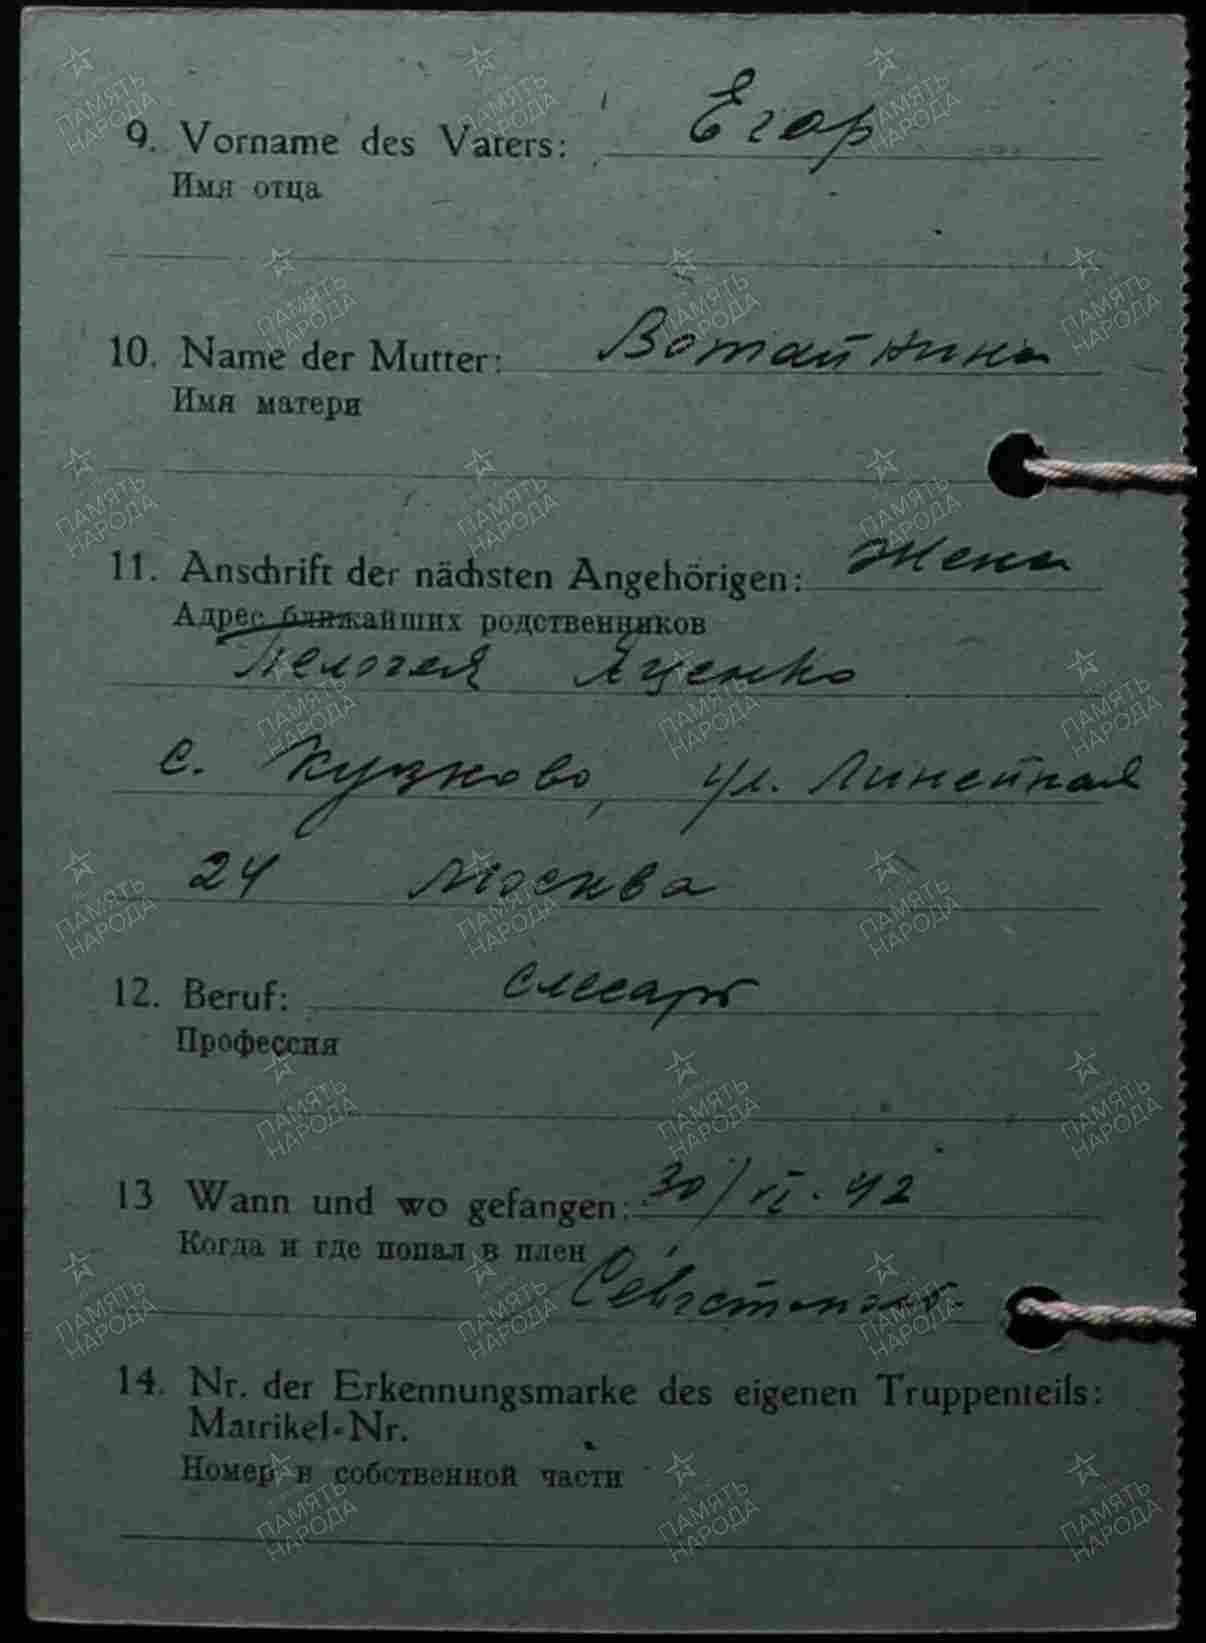 9. Vorname des Vaters: Егор
Имя отца
10. Name der Mutter: Вотайкина
Имя матери
11. Anschrift der nächsten Angehörigen: Жена
Адрес ближайших родственников
Пелогея Яценко
с. Кузково, ул. Линейная
24 Москва
12. Beruf: слесарь
Профессия
13 Wann und wo gefangen: 30/VI. 42
Когда и где попал в плен
14. Nr. der Erkennungsmarke des eigenen Truppenteils:
Matrikel-Nr.
Номер в собственной части
ПАМЯТЬ НАРОДА